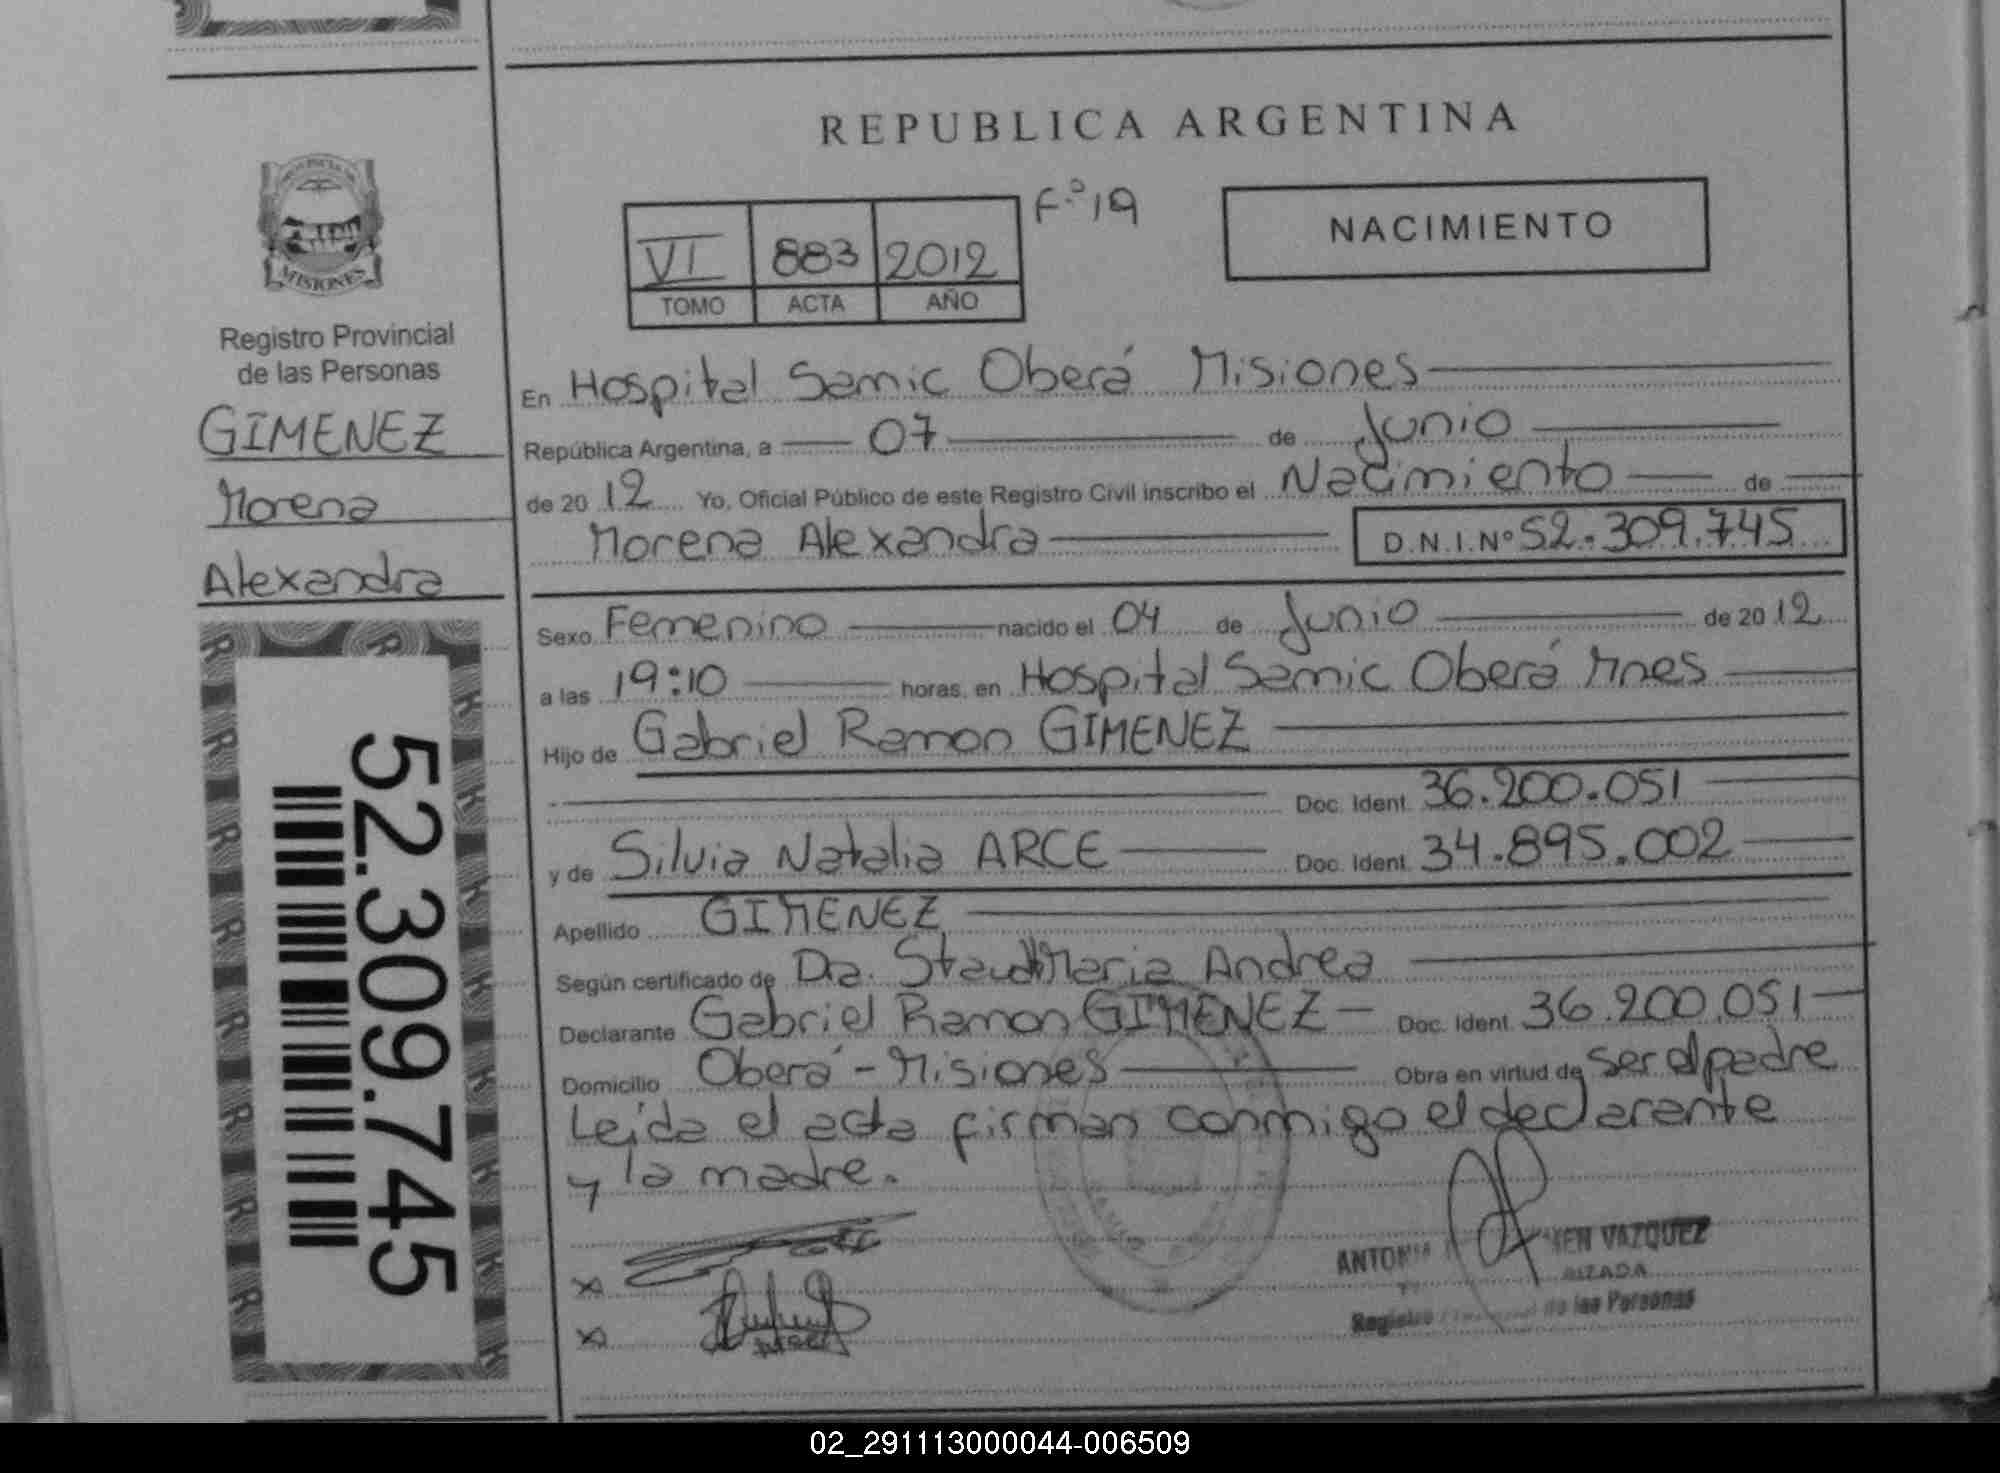 REPUBLICA ARGENTINA
PROVINCIA DE
MISIONES
Registro Provincial
de las Personas
GIMENEZ
Morena
Alexandra
52.309.745
VI 883 2012 F.º 19
TOMO ACTA AÑO
NACIMIENTO
En Hospital Samic Oberá Misiones
República Argentina, a 07 de Junio
de 2012 Yo, Oficial Público de este Registro Civil inscribo el Nacimiento de
Morena Alexandra D.N.I.Nº 52.309.745
Sexo Femenino nacido el 04 de Junio de 2012
a las 19:10 horas, en Hospital Samic Oberá Mnes
Hijo de Gabriel Ramon GIMENEZ
Doc. Ident. 36.200.051
y de Silvia Natalia ARCE Doc. Ident. 34.895.002
Apellido GIMENEZ
Según certificado de Dra. Staud Maria Andrea
Declarante Gabriel Ramon GIMENEZ Doc. Ident. 36.200.051
Domicilio Oberá - Misiones Obra en virtud de ser el padre
Leida el acta firman conmigo el declarante
y la madre.
ANTONIA VAZQUEZ
Registro de las Personas
02_291113000044-006509